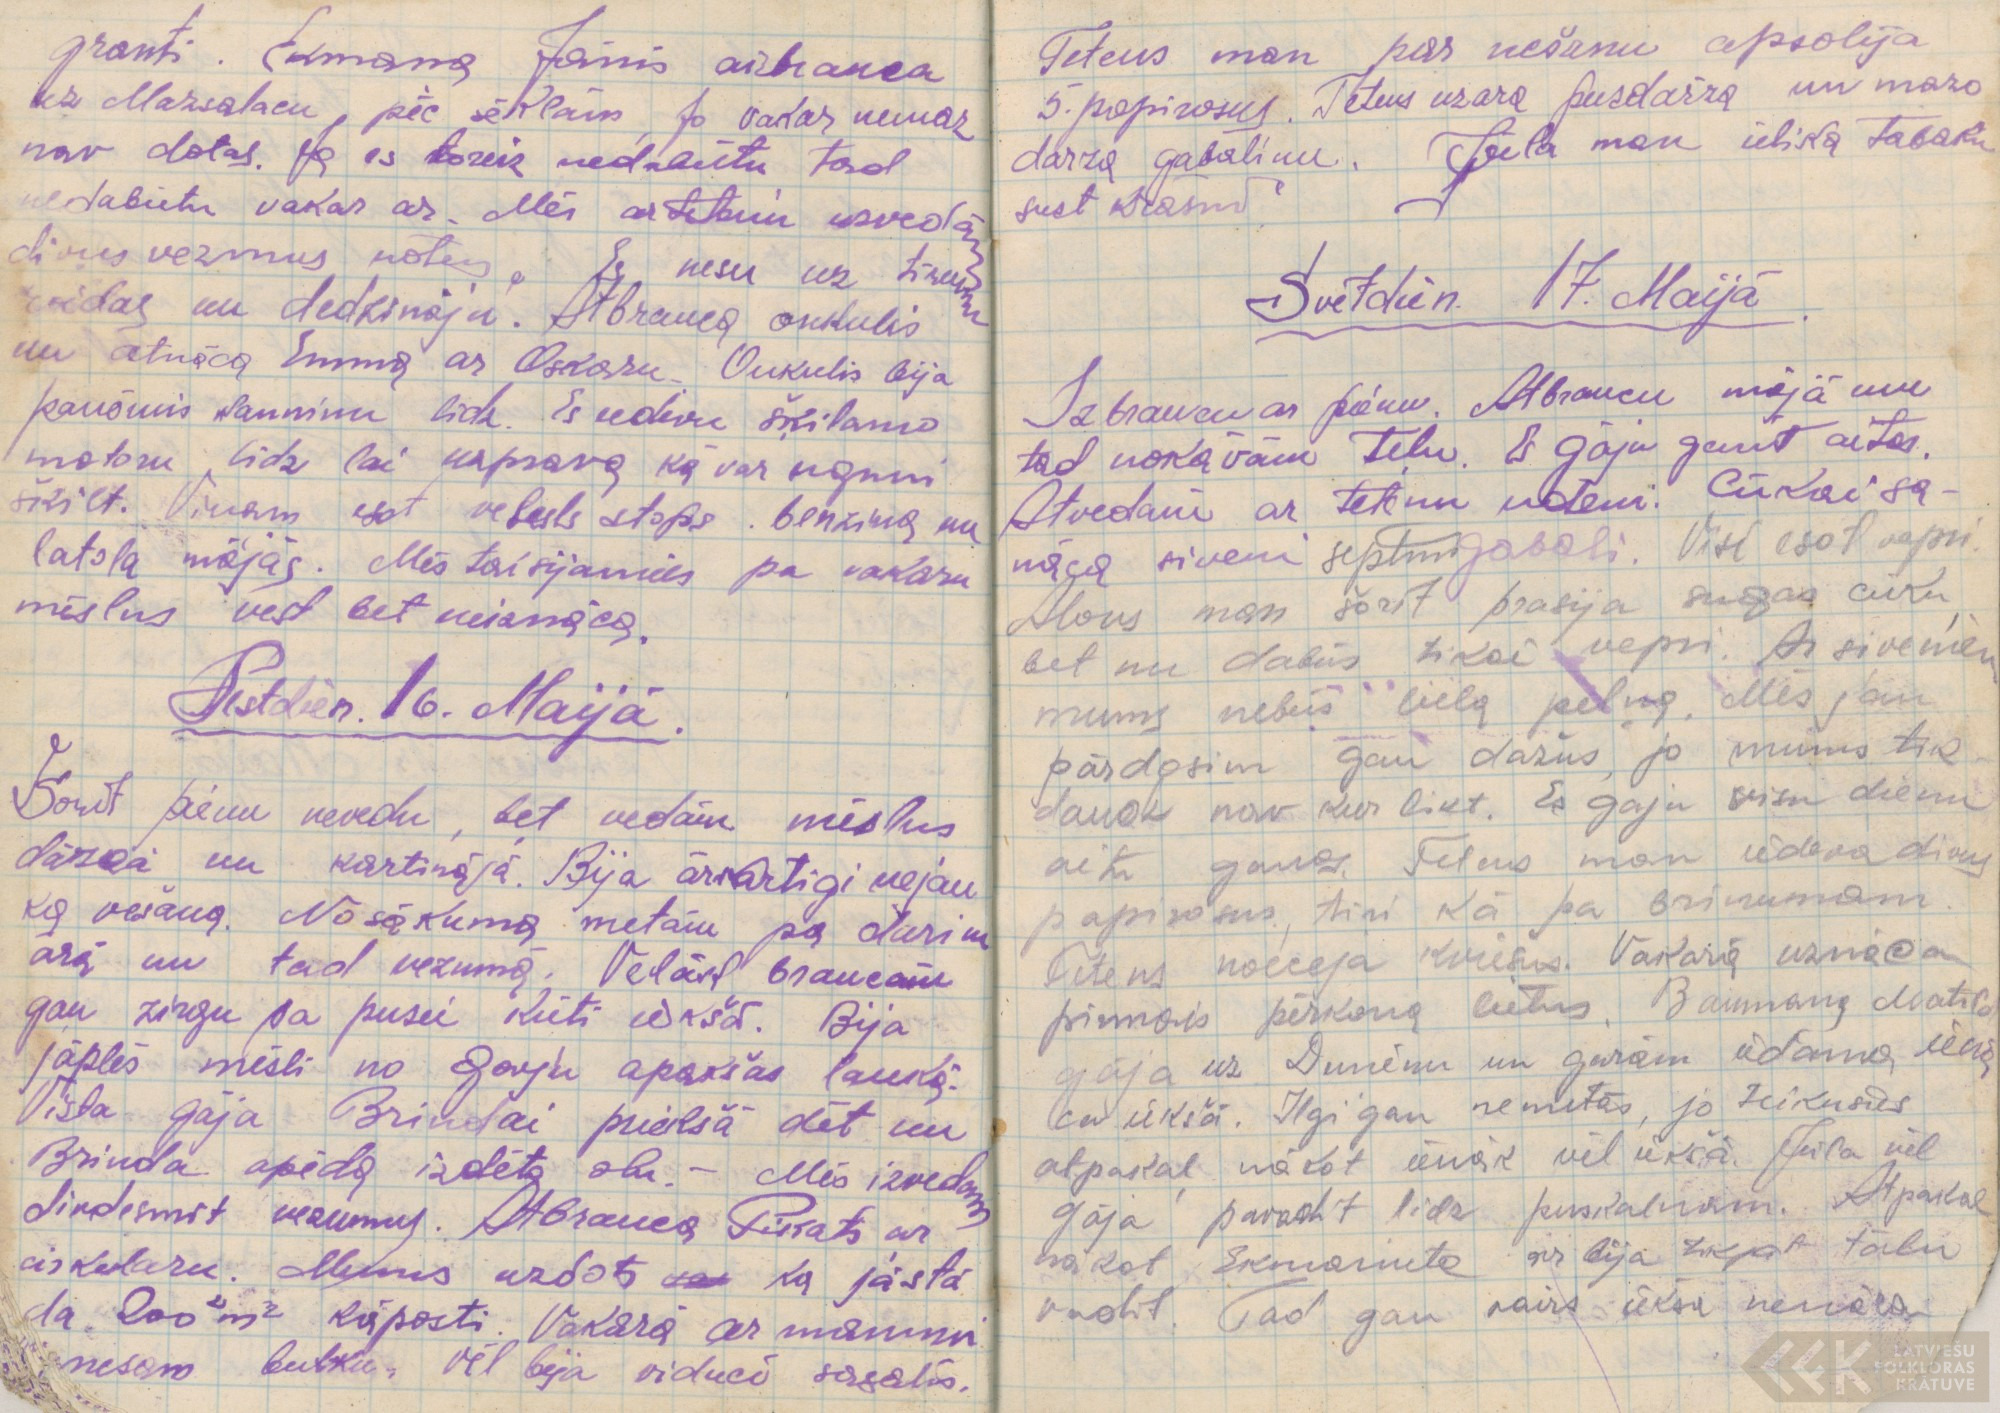 granti. Ekmaņa Jānis aizbrauca
uz Mazsalacu, pēc sēklām, jo vakar nemaz
nav dotas. Ja es toreiz nedabūtu tad
nedabūtu vakar ar. Mēs ar tētenu uzvedām
divus vezmus Es nesu uz tīrumu
un dedzināju. Atbrauca onkulis
un atnāca Emma ar Oskaru. Onkulis bija
paņēmis līdz. Es iedevu šķiļamo
motoru līdz lai uzprava ka var uguni
šķilt. Viņam esot vesels stops benzīna un
latsla mājās. Mēs taisijamies pa vakaru
mēslus vest bet neiznāca.
Sestdien. 16. Maijā.
Šorīt pienu nevedu, bet vedām mēslus
dārzā un kartiņājā. Bija ārkārtīgi vējau
ka vesana. No sākuma metām pa durim
ārā un tad vezumā. Vēlāk braucām
gan zirgu pa pusei kūtī iekšā. Bija
jāplēš mēsli no govju apakšas laukā.
Vista gāja Brindai priekšā dēt un
Brinda apēda izdēta olu. - Mēs izvedam
divdesmit vezumus. Atbrauca Pūkats ar
cirkularu. Mums uzdots ka jāstā
da 200 m² kāposti. Vakarā ar mammi
nesam bulku. Vēl bija viducī sasalis.
Tetens man par nešanu apsolija
5. papirosus. Tetens uzara pusdārza un mazo
dārza gabaliņu. Jūla man ielika tabaku
sust krāsnī
Svētdien. 17. Maijā.
Izbraucu ar pienu. Atbraucu mājā un
tad nokāvām telu. Es gāju ganīt aitas.
Atvedām ar tetenu ūdeni. Cūkai sa-
nāca siveni septiņi gabali. Visi esot vepri.
Alons man šorīt prasija sugas cūku,
bet nu dabūs tikai vepri. Ar siveniem
mums nebūs liela pelņa. Mēs jau
pārdosim gan dažus, jo mums tik
daudz nav kur likt. Es gāju visu dienu
aitu ganos. Tetens man iedeva divus
papirosus, tiri kā pa brīnumam.
Tetens noecēja kviešus. Vakarā uznāca
pirmais pērkona lietus. Baumaņa Matilde
gāja uz Dunēnu un garām iedama ienā
ca iekšā. Ilgi gan nemetās, jo teikusies
atpakaļ nākot ienāk vēl iekšā. Jūla vēl
gāja pavadīt līdz puskalnam. Atpakaļ
nākot Ekmaniete ar bija tikpat tālu
vadīt. Tad gan vairs iekša nenāca
LATVIEŠU
FOLKLORAS
KRĀTUVE